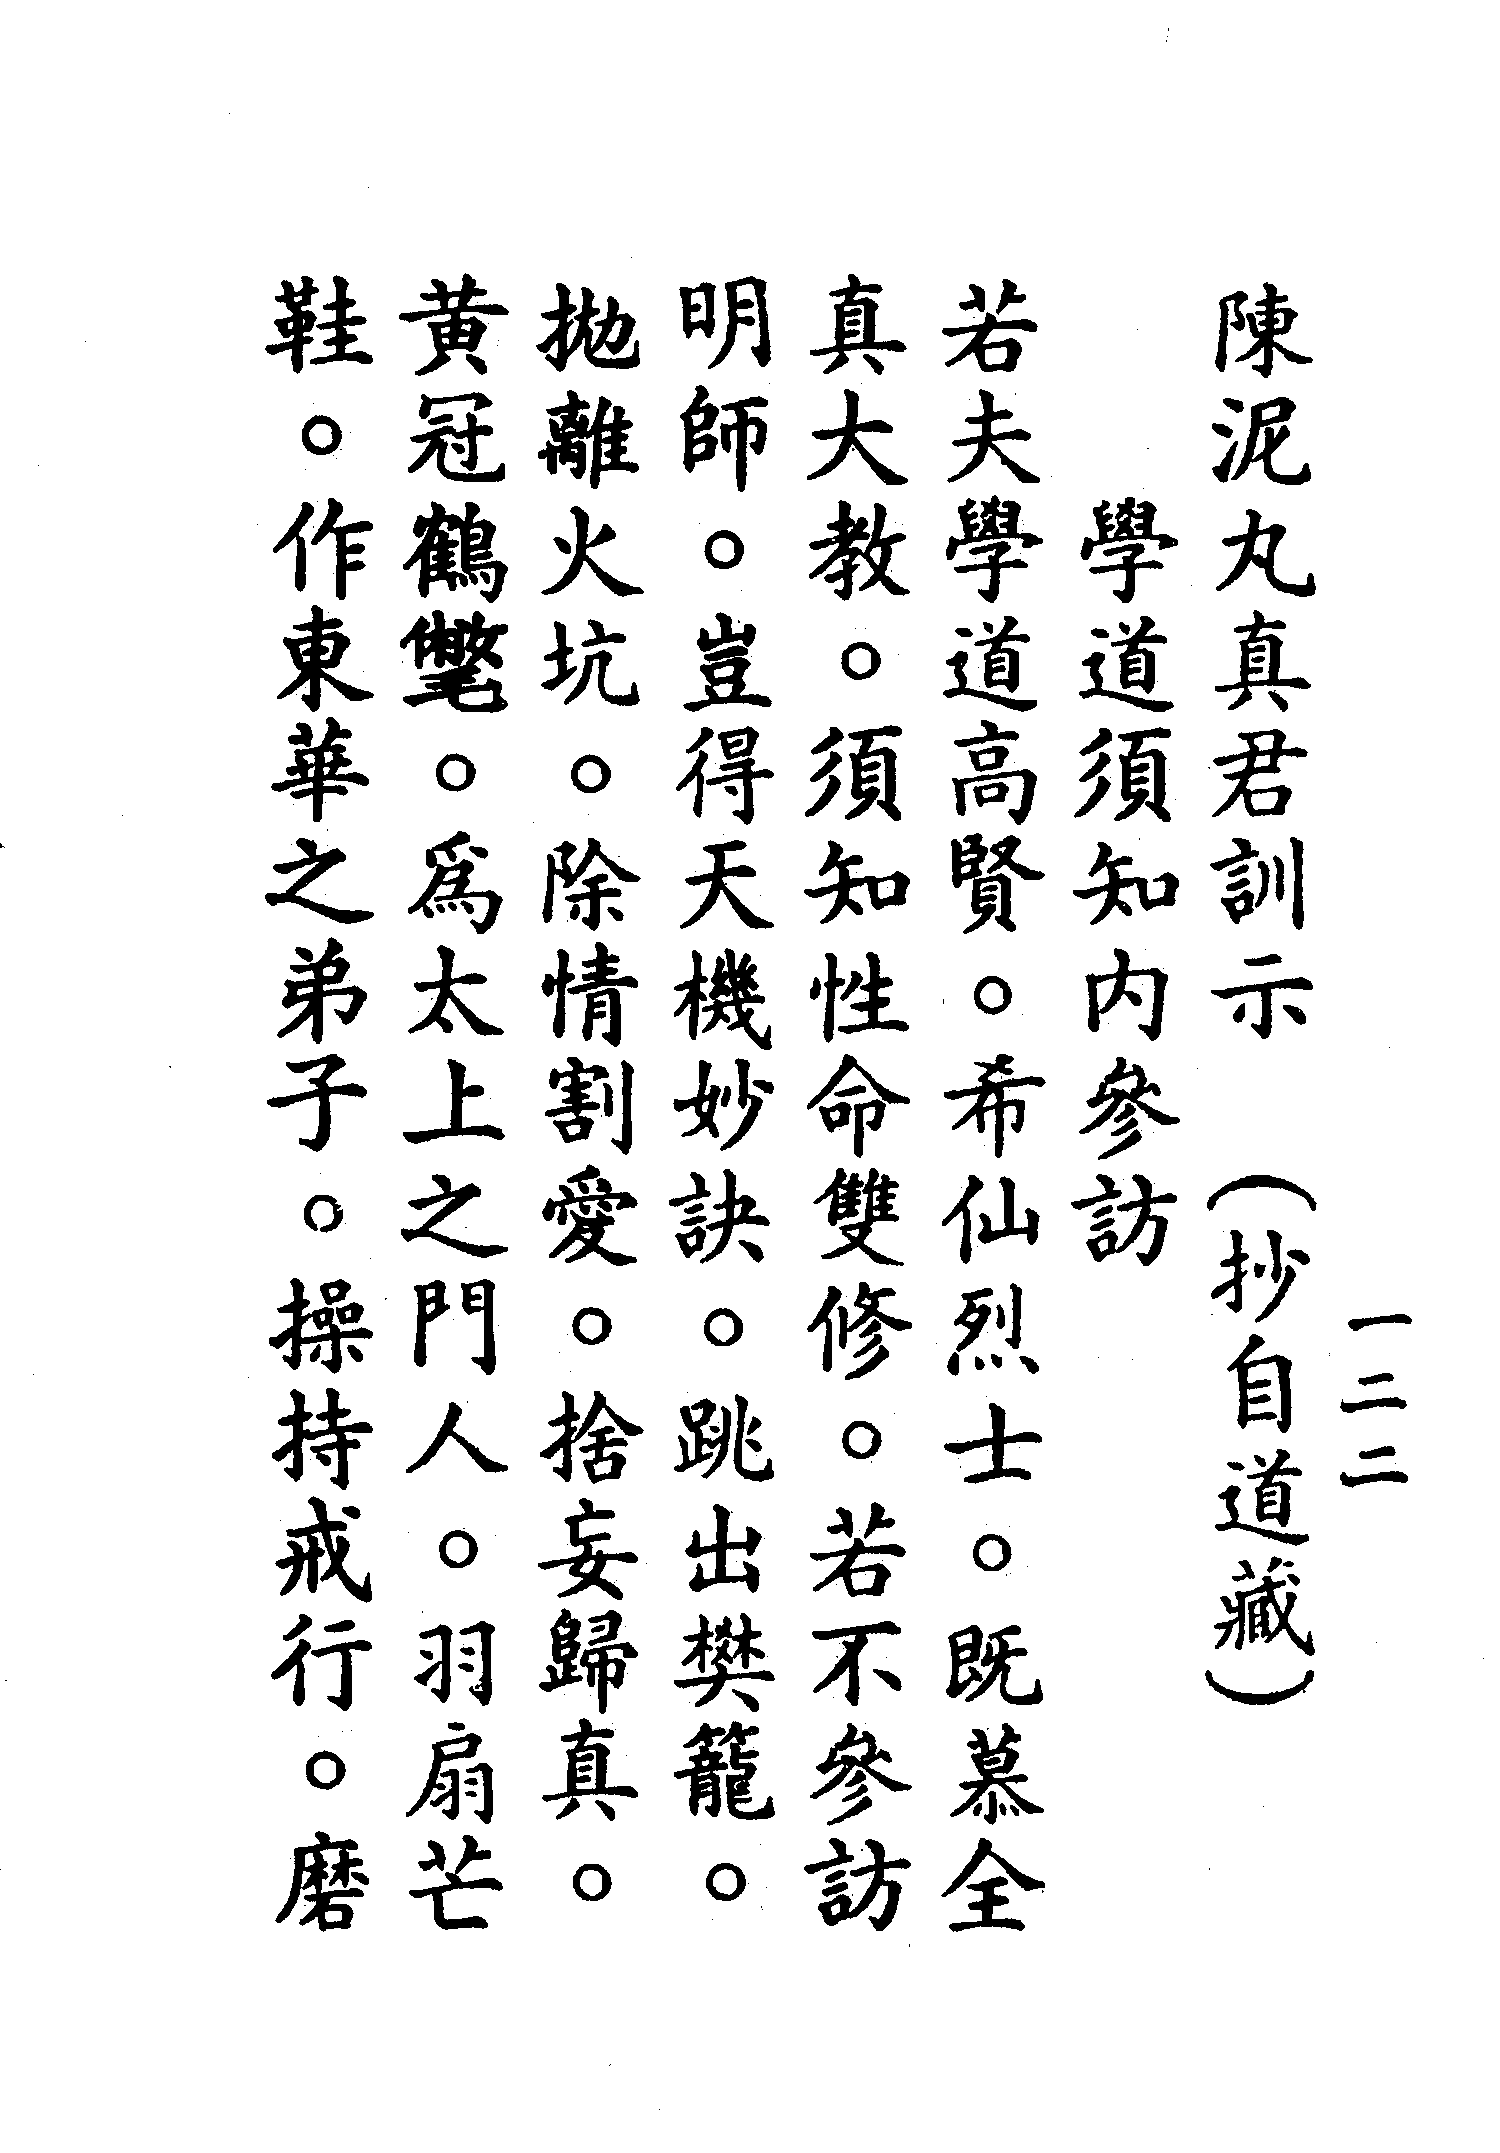 一二二
陳泥丸真君訓示　(抄自道藏)
學道須知內參訪
若夫學道高賢。希仙烈士。既慕全
真大教。須知性命雙修。若不參訪
明師。豈得天機妙訣。跳出樊籠。
拋離火坑。除情割愛。捨妄歸真。
黃冠鶴氅。為太上之門人。羽扇芒
鞋。作東華之弟子。操持戒行。磨